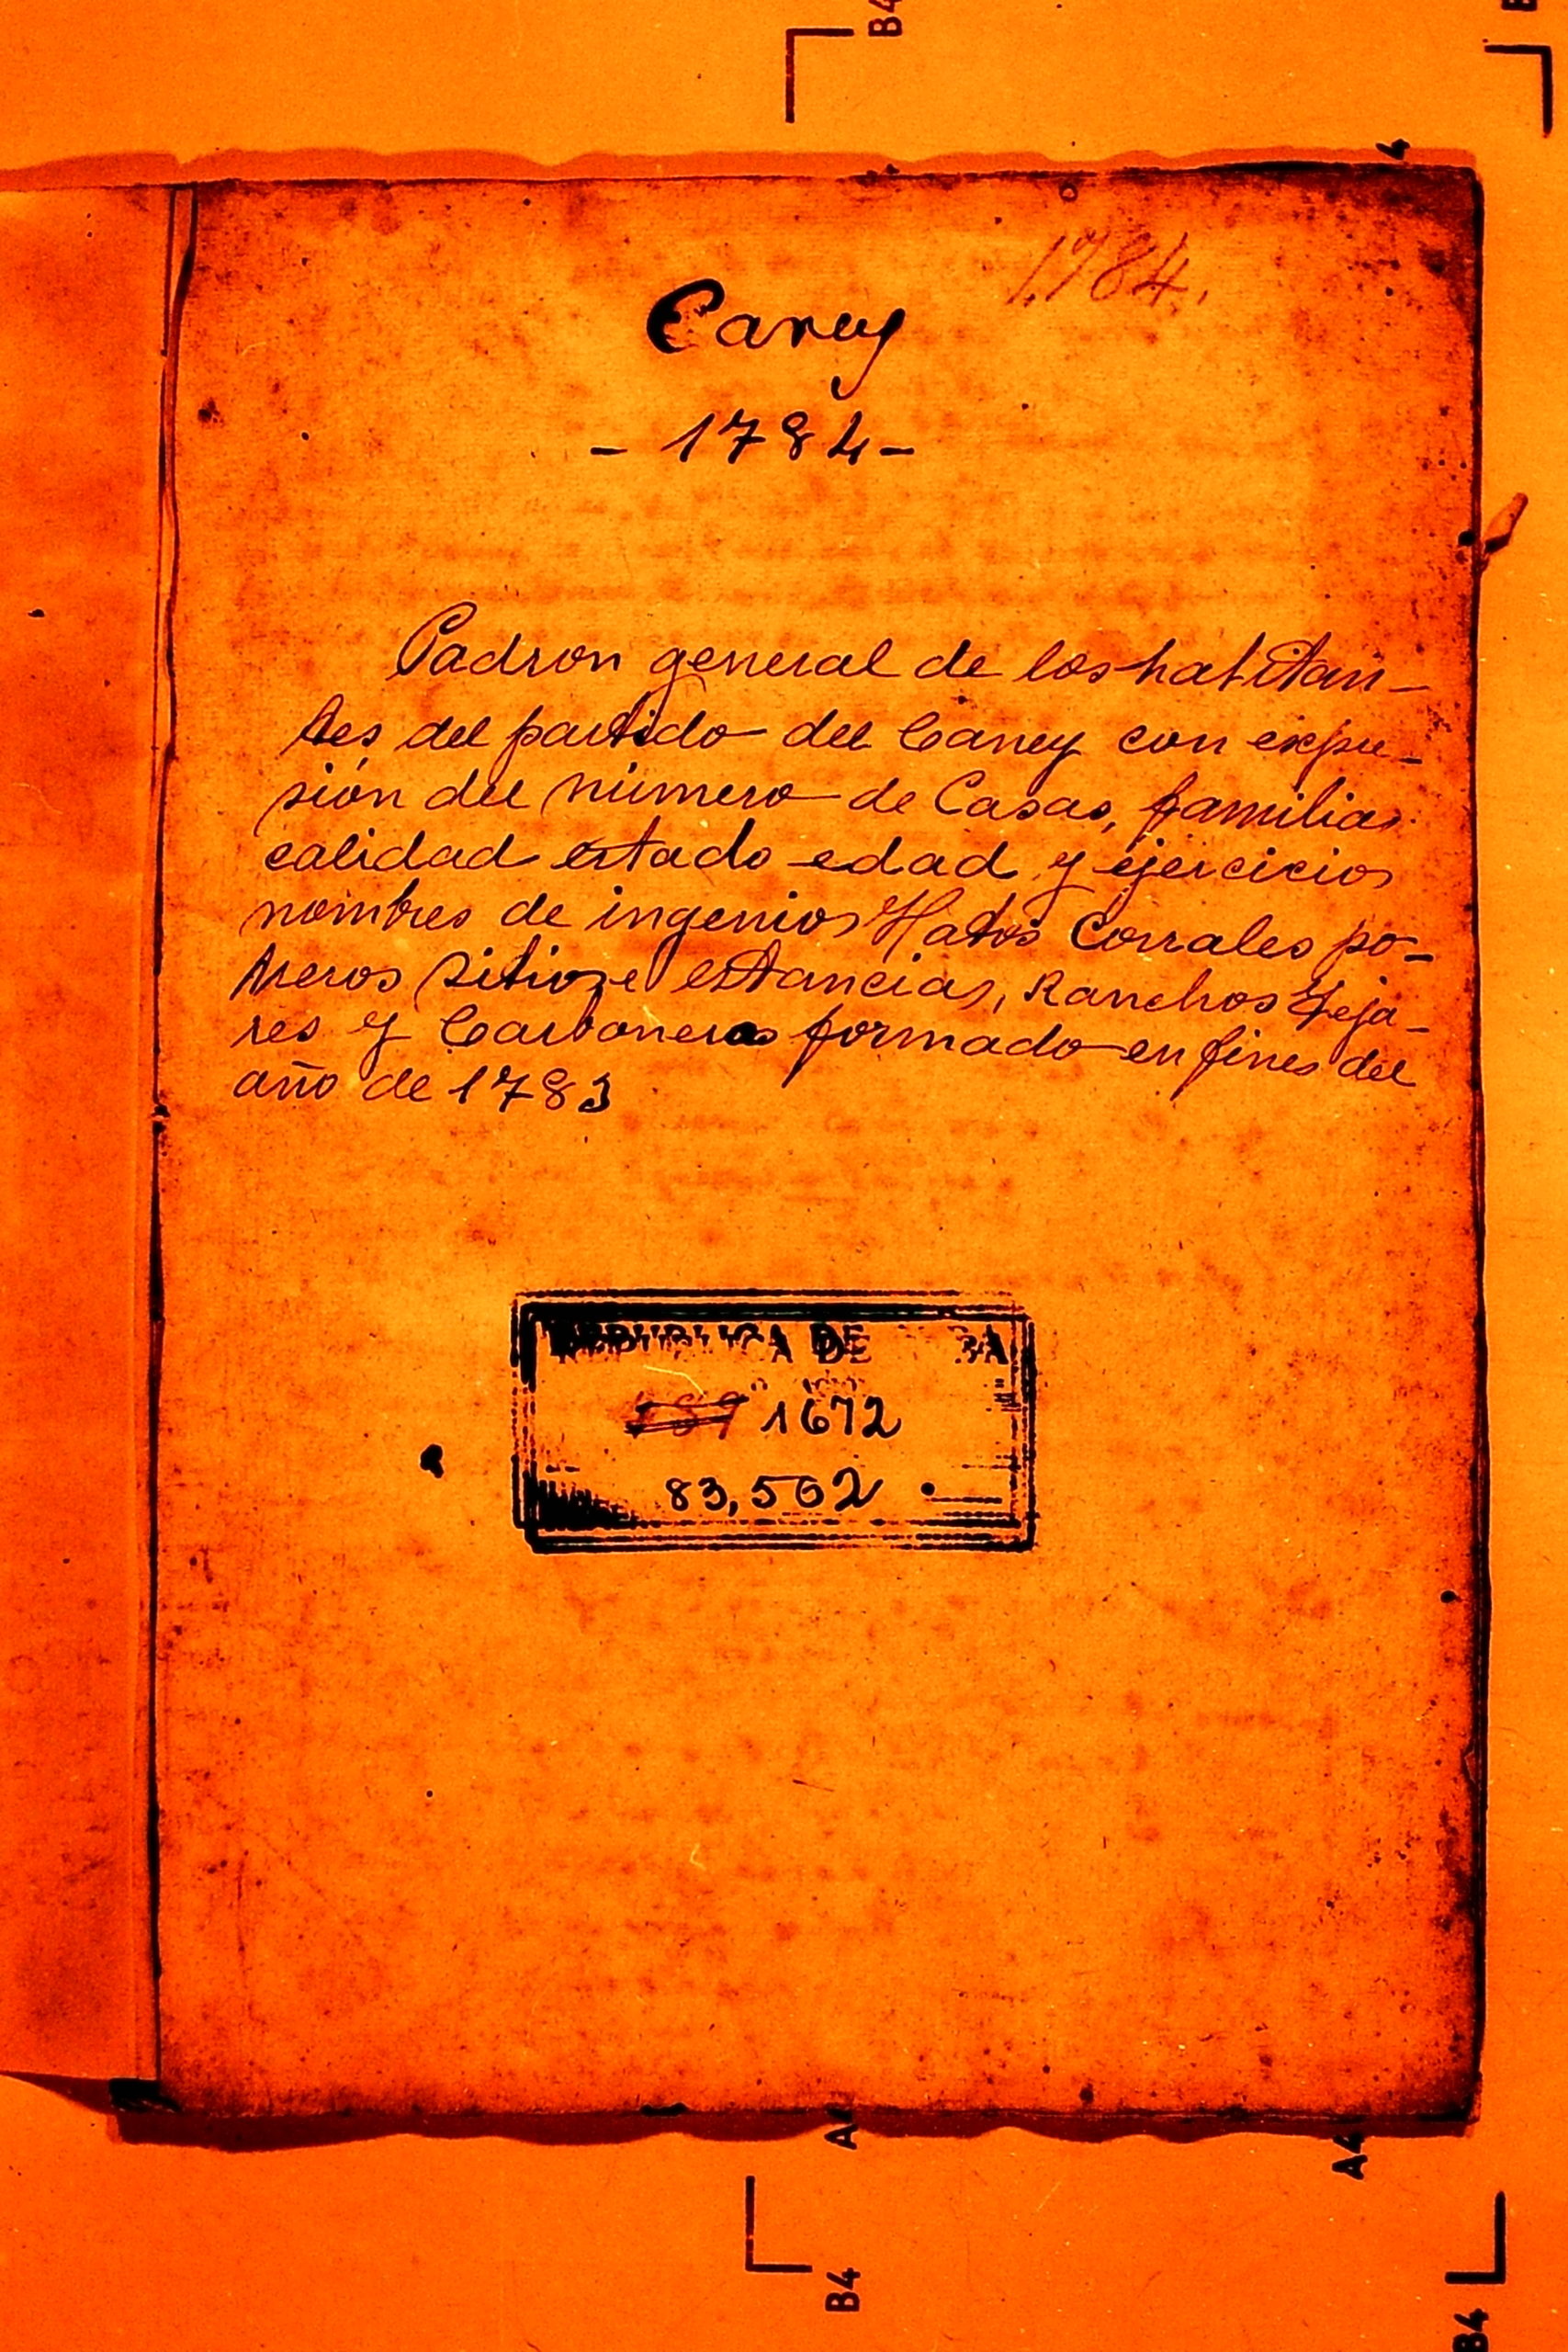 B4
1784.
Caney
- 1784 -
Padron general de los habitan-
tes del partido del Caney con expre-
sión del número de Casas, familias
calidad estado edad y ejercicios
nombres de ingenios Hatos Corrales po-
treros sitios e estancias, Ranchos Teja-
res y Carboneras formado en fines del
año de 1783
REPUBLICA DE BA
1672
83,502
A4
A4
B4
B4